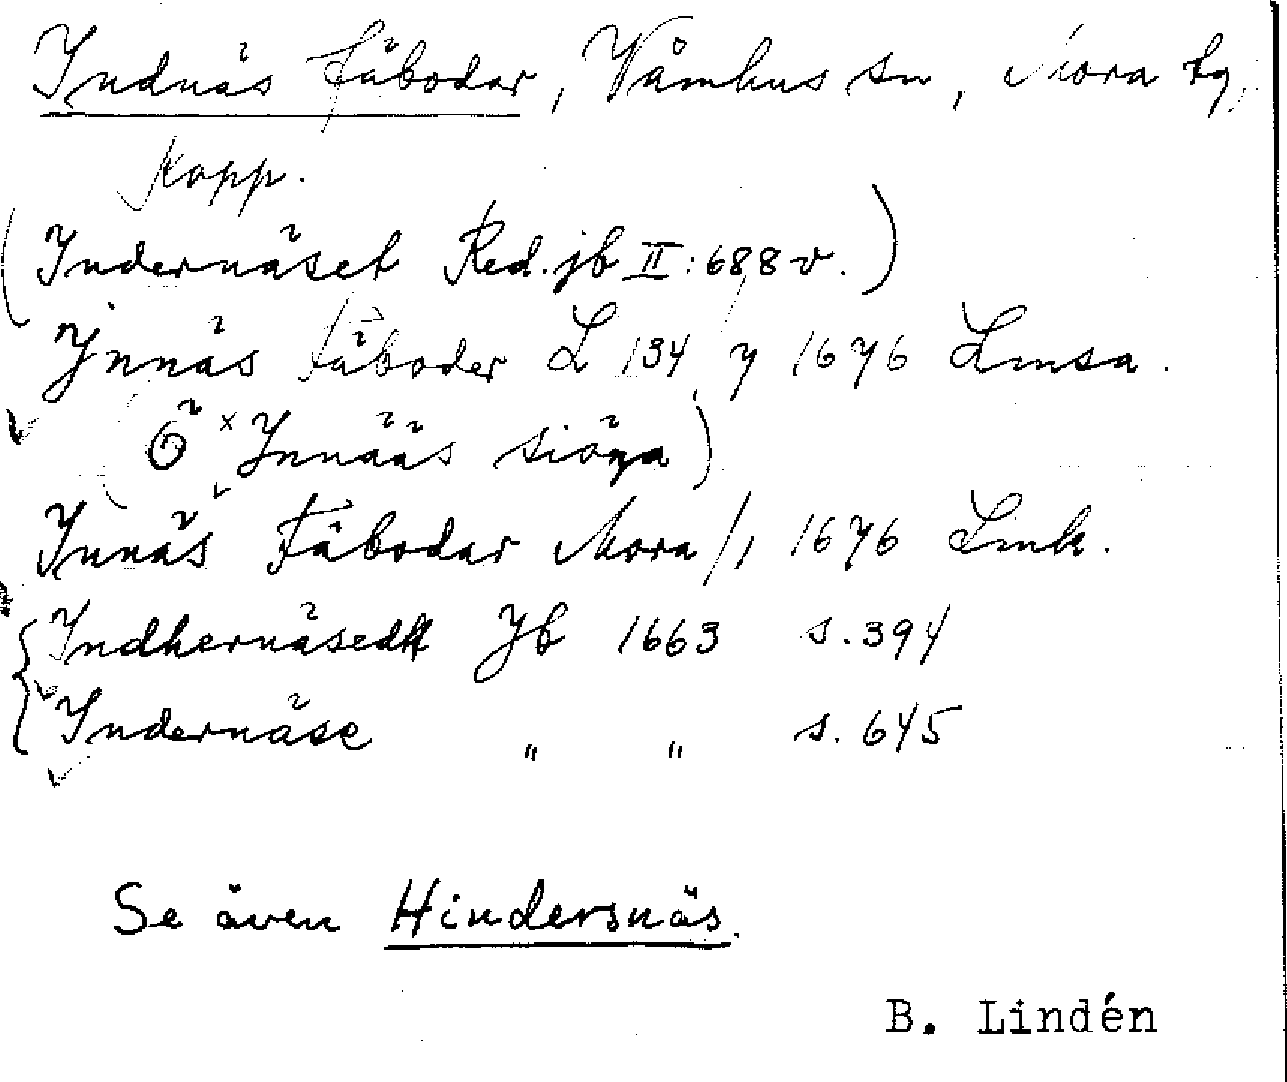 Indnäs fäbodar, Våmhus sn, Mora tg,
Kopp.
(Indernäset Red. jb II:688 v.)
Jnnäs fäboder L 134, 7 1676 Lmsa.
(Ö x Innääs siöga)
Innäs Fäbodar Mora/1 1676 Lmk.
Indhernäsedt Jb 1663 s. 394
Indernäse " " s. 645
Se även Hindersnäs.
B. Lindén